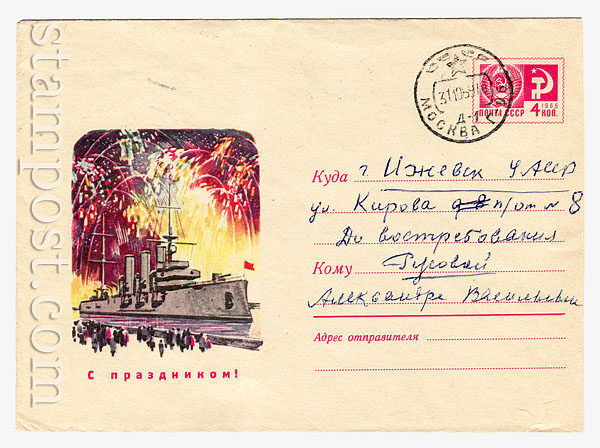 stampost.com
СССР
31 10 69
МОСКВА
Д-
ПОЧТА СССР
1966
4 КОП.
Куда г. Ижевск УАССР
ул. Кирова п/от N 8
До востребования
Кому Гусовай
Александре Васильевне
Адрес отправителя
С праздником!